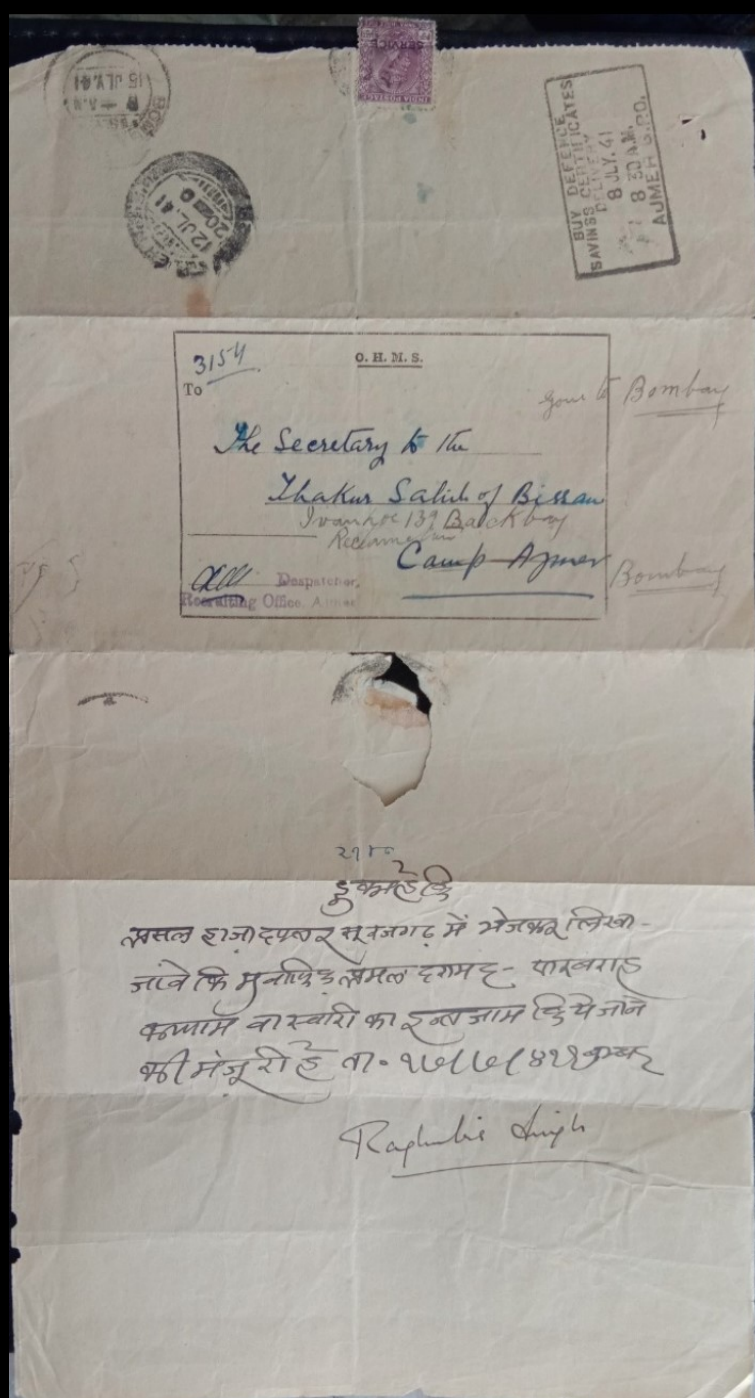 SERVICE
INDIA POSTAGE
15 JLY. 41
12 JL. 41
BUY DEFENCE
SAVINGS CERTIFICATES
DELIVERY
8 JLY. 41
8 30 A.M.
AJMER G.P.O.
3154
O. H. M. S.
To
gone to Bombay
The Secretary to the
Thakur Sahib of Bissau
Ivanhoe 139 Backbay
Reclamation
Camp Ajmer
Bombay
Despatcher,
Recruiting Office, Ajmer
हुकम है कि
असल हाज़ा दफ्तर सूरजगढ़ में भेजकर लिखा-
जावे कि मुवाफिक़ अमल दरामद
वा स्वारी का इन्तजाम किये जाने
की मंजूरी है ता॰ १७/७/४१
Raghubir Singh